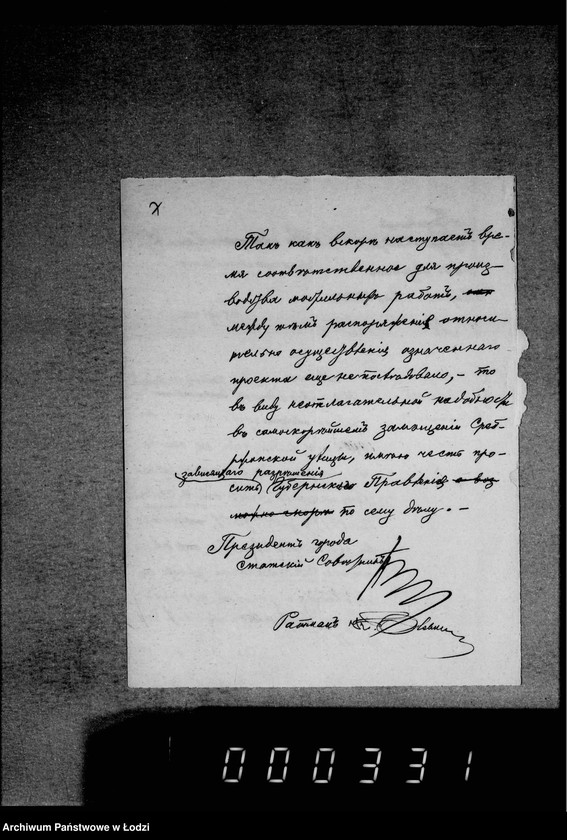 Такъ какъ вскорѣ наступаетъ вре-
мя соотвѣтственное для произ-
водства мостильныхъ работъ,
между тѣмъ распоряженія относи-
тельно осуществленія означеннаго
проекта еще не послѣдовало, - то
въ виду неотлагательной надобности
въ самоскорѣйшемъ замощеніи Сред-
ней улицы, имѣю честь про-
зависящаго разрѣшенія
сить Губернскаго Правленія
можно скорѣе по сему дѣлу. -
Президентъ города
Статскій Совѣтникъ
Ратманъ
000331
Archiwum Państwowe w Łodzi